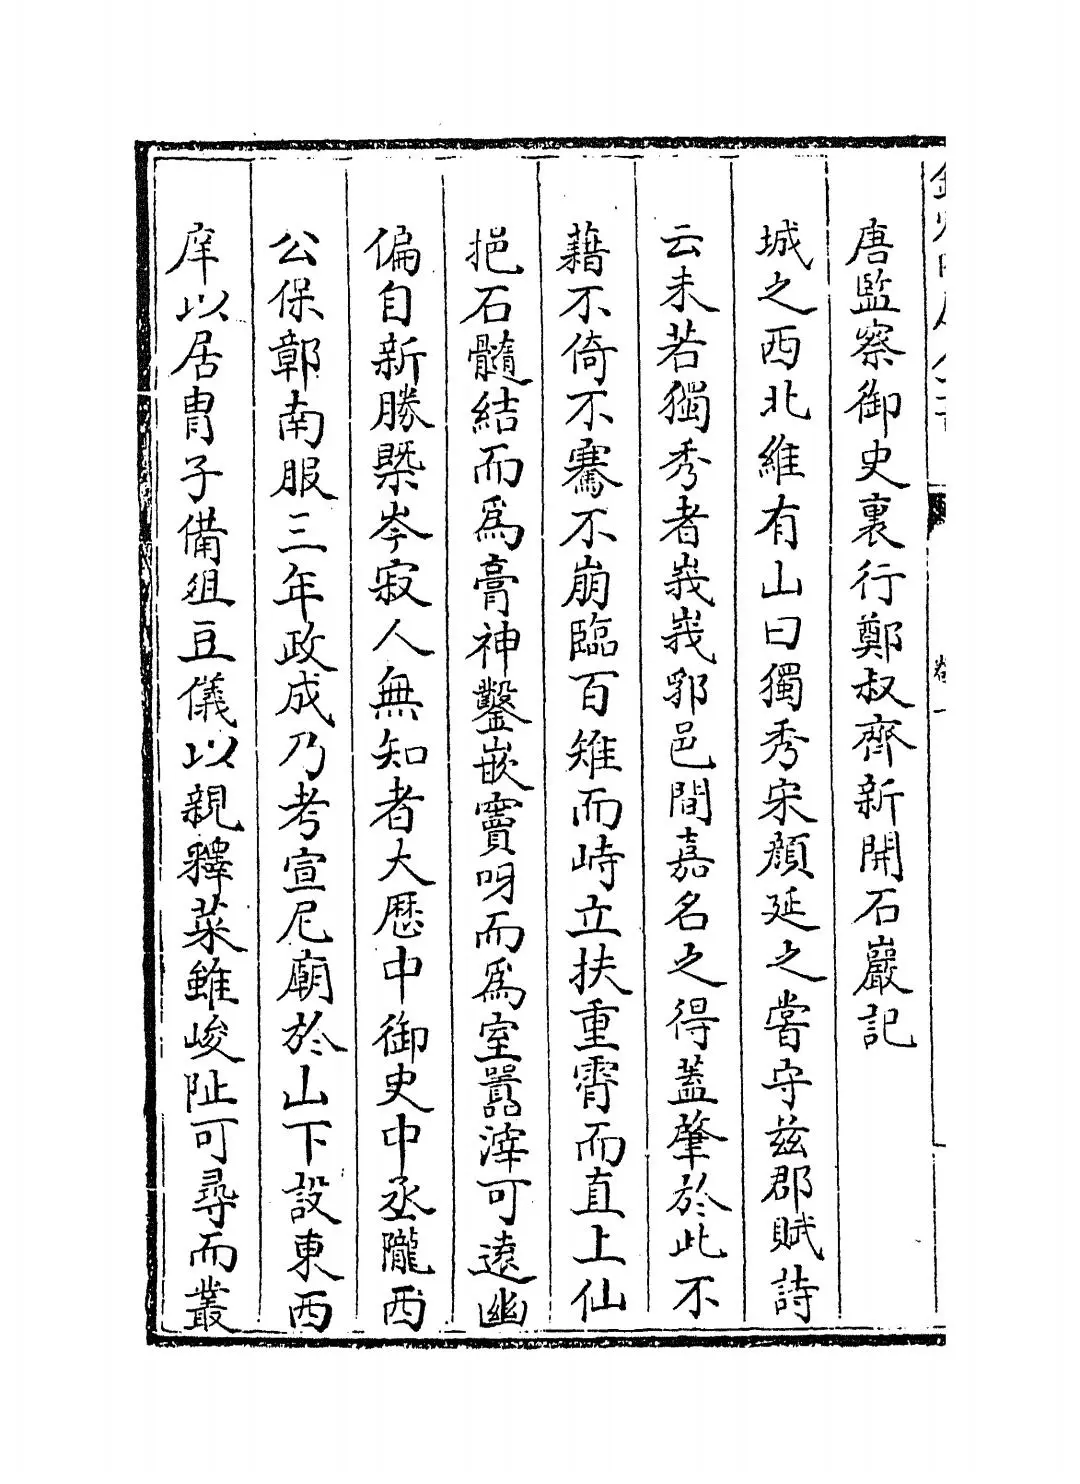 唐監察御史裏行鄭叔齊新開石巖記
城之西北維有山曰獨秀宋顏延之嘗守茲郡賦詩
云未若獨秀者峩峩郛邑間嘉名之得蓋肇於此不
藉不倚不騫不崩臨百雉而峙立扶重霄而直上仙
挹石髓結而爲膏神鑿嵌竇呀而爲室嚻滓可遠幽
偏自新勝槩岑寂人無知者大歴中御史中丞隴西
公保鄣南服三年政成乃考宣尼廟於山下設東西
庠以居胄子備俎豆儀以親釋菜雖峻阯可尋而叢